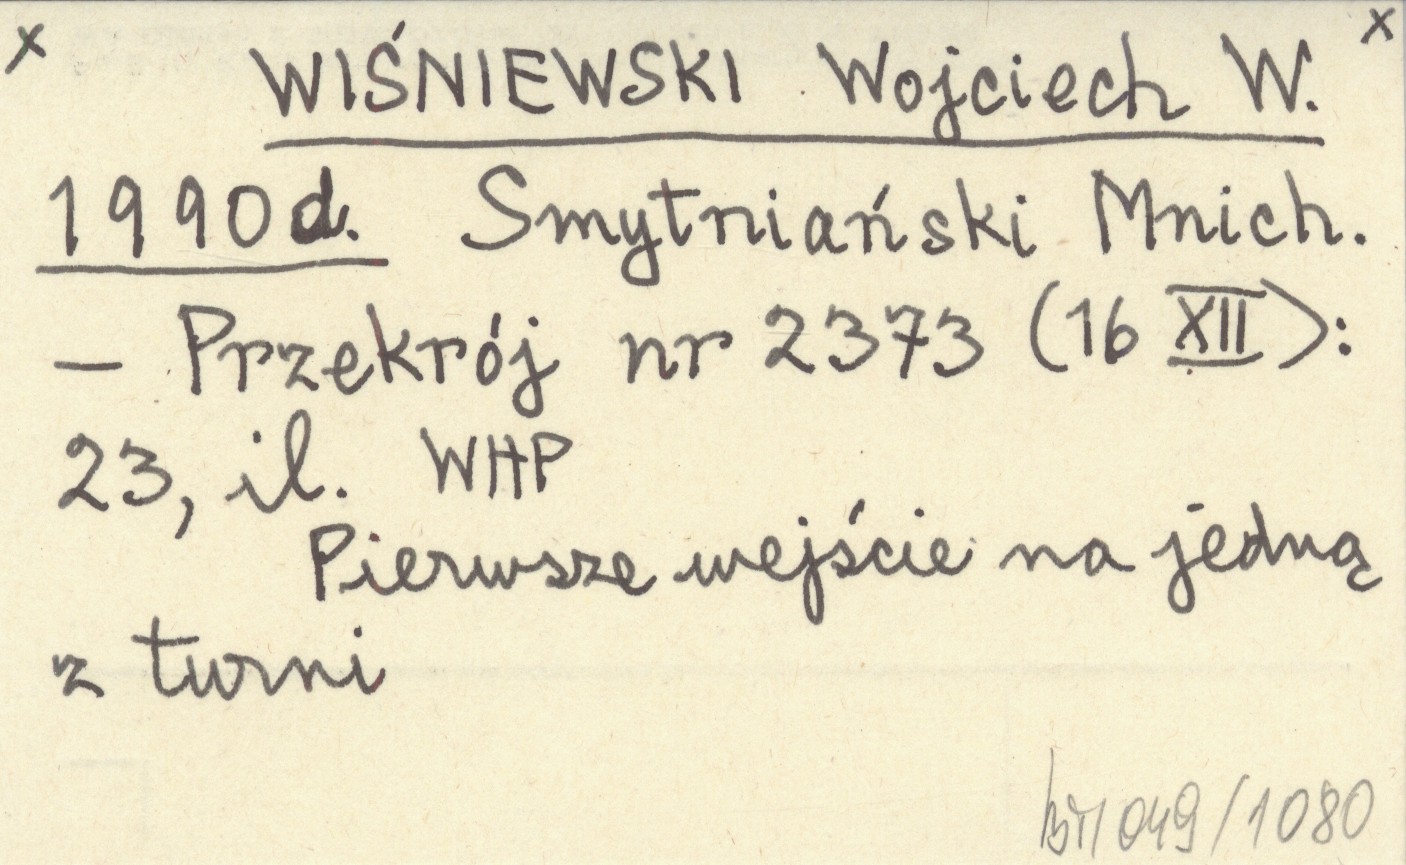 x WIŚNIEWSKI Wojciech W. x
1990d. Smytniański Mnich.
– Przekrój nr 2373 (16 XII):
23, il. WHP
Pierwsze wejście na jedną
z turni
049/1080